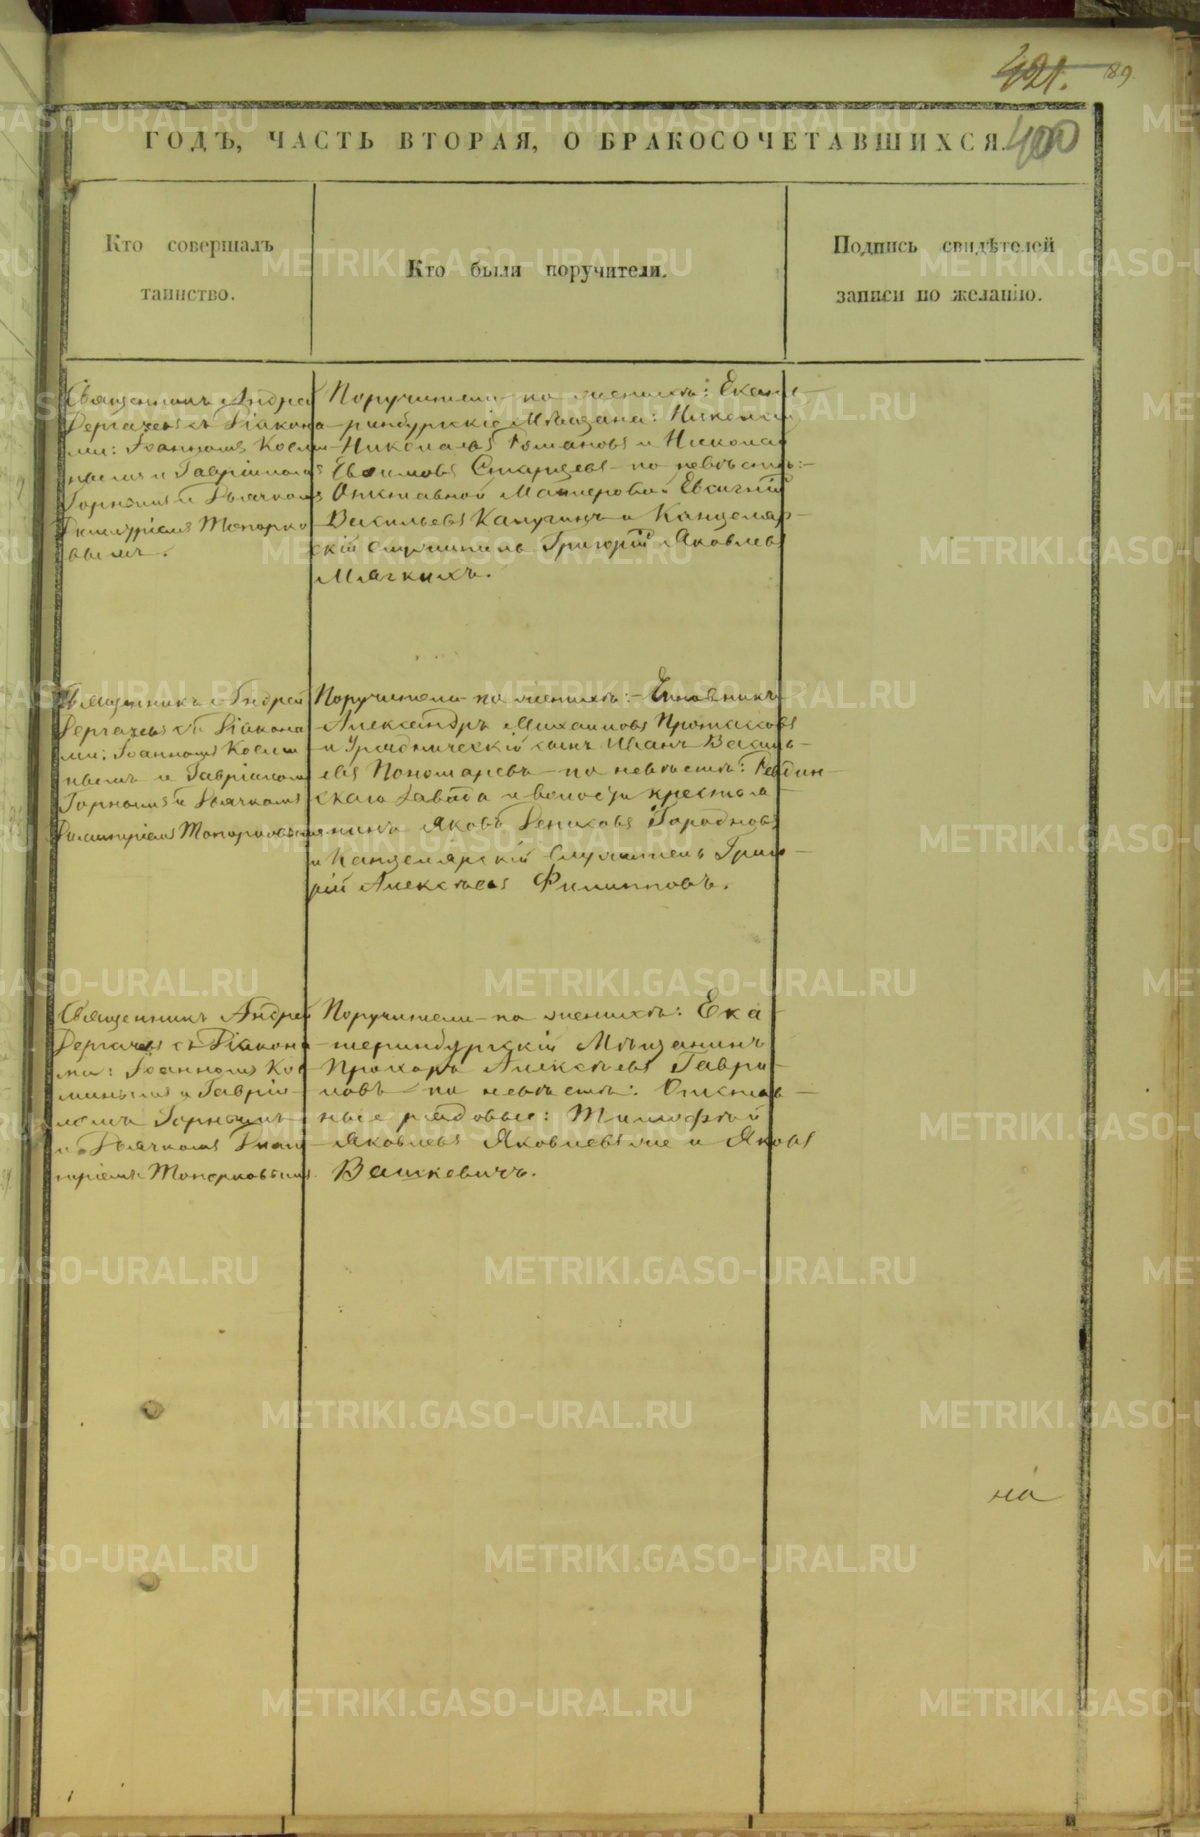 421. 89
400
ГОДЪ, ЧАСТЬ ВТОРАЯ, О БРАКОСОЧЕТАВШИХСЯ.
Кто совершалъ
таинство.
Кто были поручители.
Подпись свидѣтелей
записи по желанію.
Священникъ Андрей
Дергачевъ съ Діакона-
ми: Іоанномъ Косми-
нымъ и Гавріиломъ
Горнымъ и Дьячкомъ
Димитріемъ Топорко-
вымъ.
Поручители по женихѣ: Екате-
ринбургскіе Мѣщане:
Николаевъ Романовъ и Николай
Евѳимовъ Старцевъ по невѣстѣ:
Отставной Мастеровой Евсигній
Васильевъ Калугинъ и Канцеляр-
скій служитель Григорій Яковлевъ
Мягкихъ.
Священникъ Андрей
Дергачевъ съ Діакона-
ми: Іоанномъ Косми-
нымъ и Гавріиломъ
Горнымъ и Дьячкомъ
Димитріемъ Топорковымъ
Поручители по женихѣ: Чиновникъ
Александръ Михаиловъ Протасовъ
и Урядническій сынъ Иванъ Василь-
евъ Пономаревъ по невѣстѣ: Ревдин-
скаго завода и волости крестья-
нинъ Яковъ Денисовъ
и Канцелярскій Служитель Григо-
рій Алексѣевъ Филипповъ.
Священникъ Андрей
Дергачевъ съ Діакона-
ми: Іоанномъ Кос-
минымъ и Гавріи-
ломъ Горнымъ
и Дьячкомъ Дими-
тріемъ Топорковымъ.
Поручители по женихѣ: Ека-
теринбургскій Мѣщанинъ
Прохоръ Алексѣевъ Гаври-
ловъ по невѣстѣ: Отстав-
ные рядовые: Тимофѣй
Яковлевъ Яковлевъ же и Яковъ
Вашкевичъ.
на
METRIKI.GASO-URAL.RU